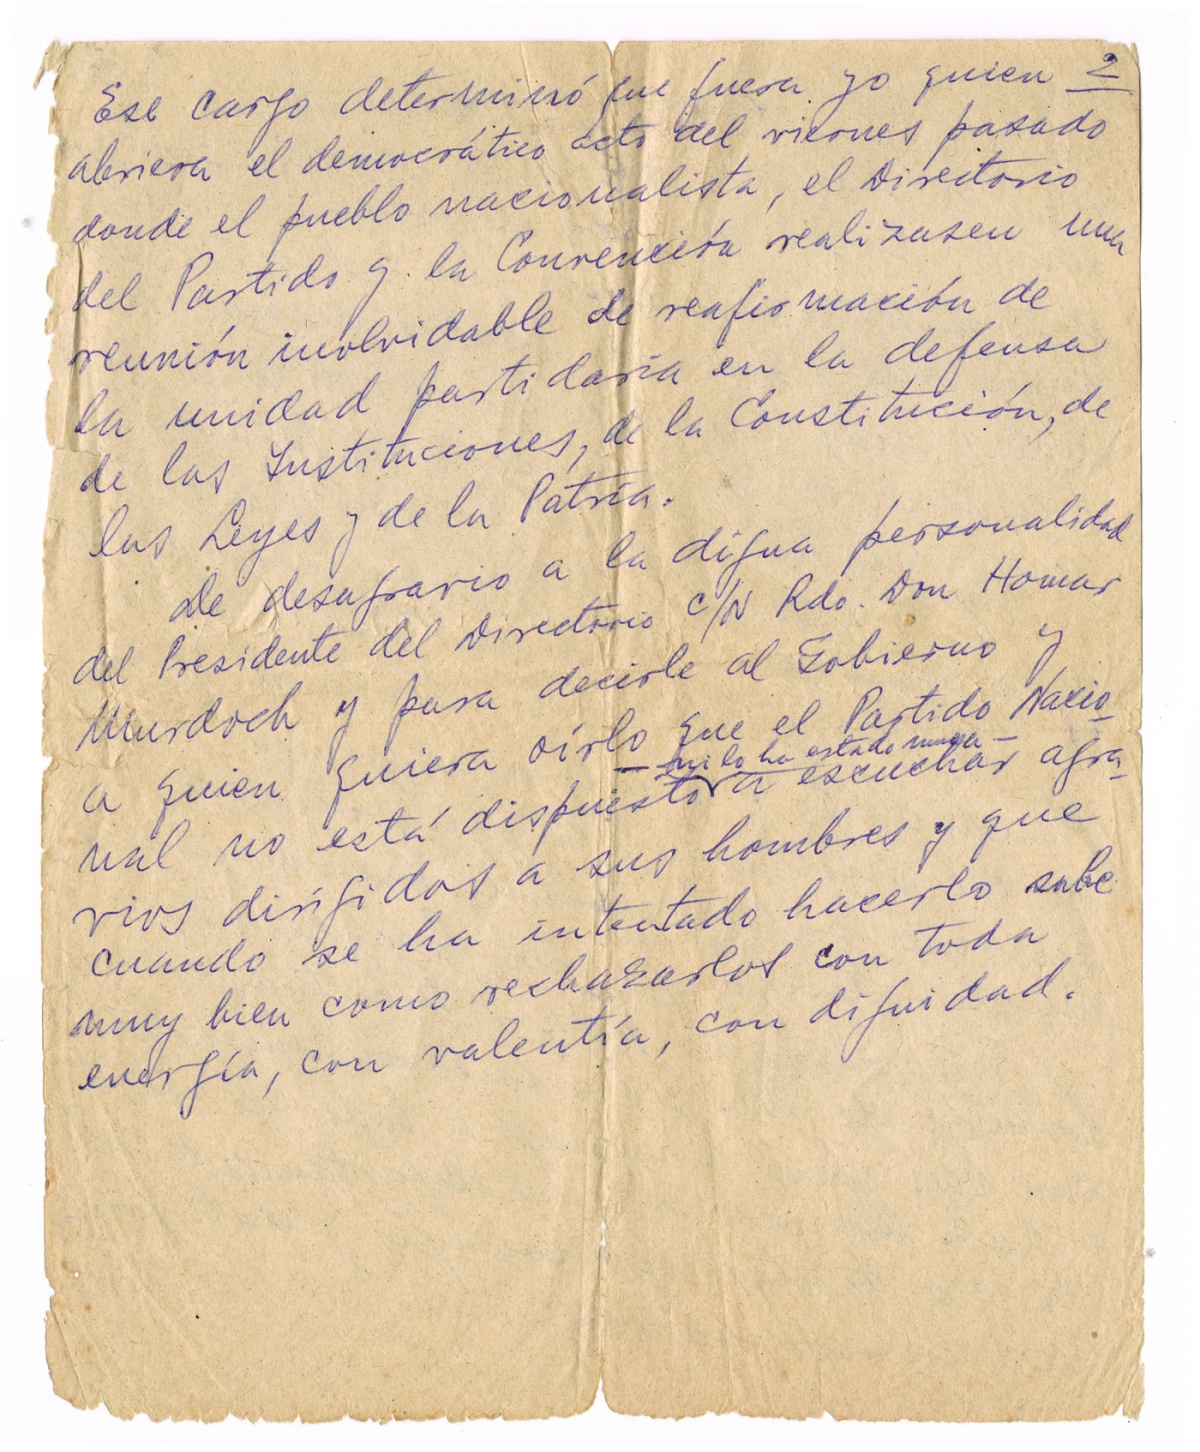 2
Ese cargo determinó que fuera yo quien
abriera el democrático acto del viernes pasado
donde el pueblo nacionalista, el Directorio
del Partido y la Convención realizasen una
reunión inolvidable de reafirmación de
la unidad partidaria en la defensa
de las Instituciones, de la Constitución, de
las Leyes y de la Patria.
de desagravio a la digna personalidad
del Presidente del Directorio C/N Rdo. Don Homar
Murdoch y para decirle al Gobierno y
a quien quiera oírlo que el Partido Nacio-
— ni lo ha estado nunca —
nal no está dispuesto a escuchar agra-
vios dirigidos a sus hombres y que
cuando se ha intentado hacerlo sabe
muy bien como rechazarlos con toda
energía, con valentía, con dignidad.